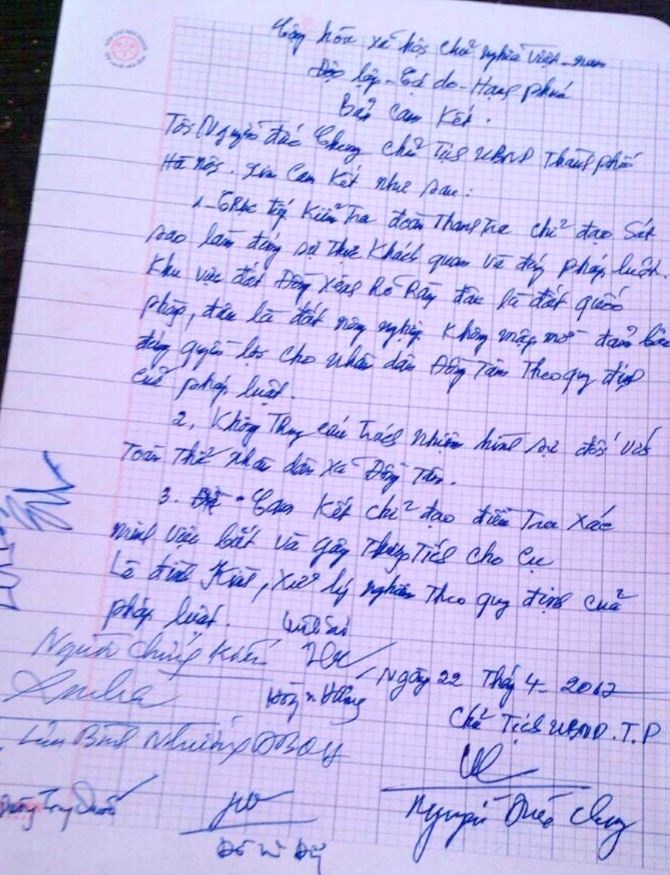 Cộng hòa xã hội chủ nghĩa Việt-nam
Độc lập - Tự do - Hạnh phúc
Bản Cam Kết.
Tôi Nguyễn Đức Chung Chủ Tịch UBND Thành phố
Hà Nội. Xin Cam Kết như sau:
1- Trực tiếp Kiểm Tra đoàn Thanh Tra chỉ đạo Sát
sao làm đúng sự thực Khách quan và đúng pháp luật
Khu vực đất Đồng Xênh Rõ Ràng đâu là đất quốc
phòng, đâu là đất nông nghiệp. Không mập mờ đảm bảo
đúng quyền lợi cho nhân dân Đồng Tâm Theo quy định
của pháp luật.
2, Không Truy cứu trách nhiệm hình sự đối với
Toàn Thể Nhân dân Xã Đồng Tâm.
3. Cam Kết chỉ đạo điều Tra Xác
minh việc bắt và gây Thương Tích cho Cụ
Lê đình Kình, Xử lý nghiêm Theo quy định của
pháp luật.
Người Chứng Kiến
Ngày 22 Tháng 4- 2017
Chủ Tịch UBND.T.P
Lưu Bình Nhưỡng ĐBQH
Nguyễn Đức Chung